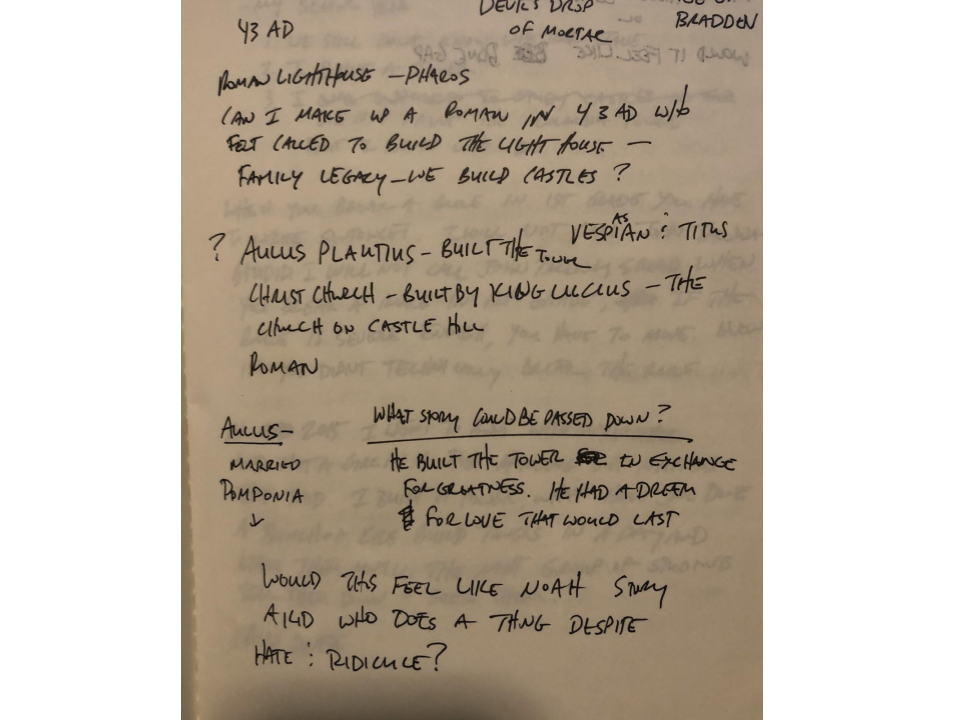 DEVIL'S DROP
OF MORTAR
BRADDEN
43 AD
WOULD IT FEEL LIKE
ROMAN LIGHTHOUSE – PHAROS
CAN I MAKE UP A ROMAN IN 43 AD WHO
FELT CALLED TO BUILD THE LIGHT HOUSE —
FAMILY LEGACY – WE BUILD CASTLES ?
? AULUS PLAUTIUS – BUILT THE TOWER
VESPIAN : TITUS
AS
CHRIST CHURCH – BUILT BY KING LUCIUS – THE
CHURCH ON CASTLE HILL
ROMAN
AULUS –
MARRIED
POMPONIA
WHAT STORY COULD BE PASSED DOWN ?
HE BUILT THE TOWER IN EXCHANGE
FOR GREATNESS. HE HAD A DREEM
FOR LOVE THAT WOULD LAST
WOULD THIS FEEL LIKE NOAH STORY
WHO DOES A THING DESPITE
HATE : RIDICULE ?